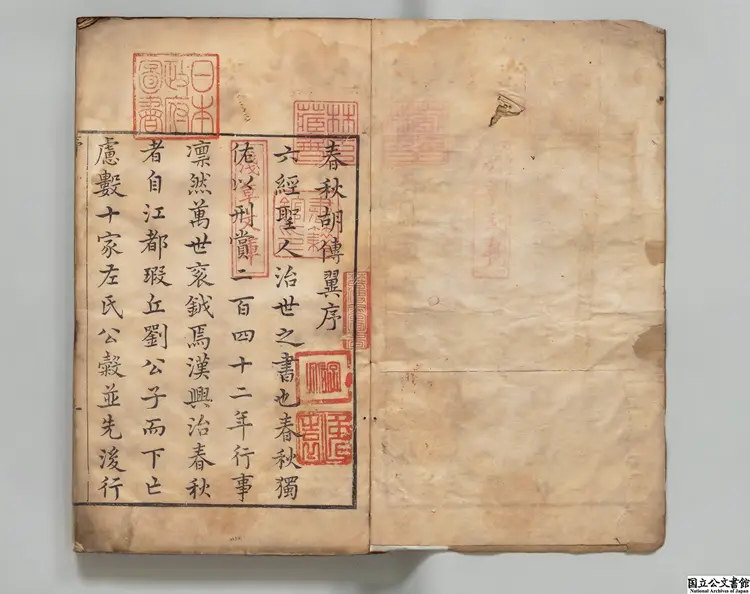 春秋胡傳翼序
六經聖人治世之書也春秋獨
佐以刑賞二百四十二年行事
凛然萬世衮鉞焉漢興治春秋
者自江都瑕丘劉公子而下亡
慮數十家左氏公縠並先後行
日本
政府
圖書
淺草文庫
国立公文書館
National Archives of Japan